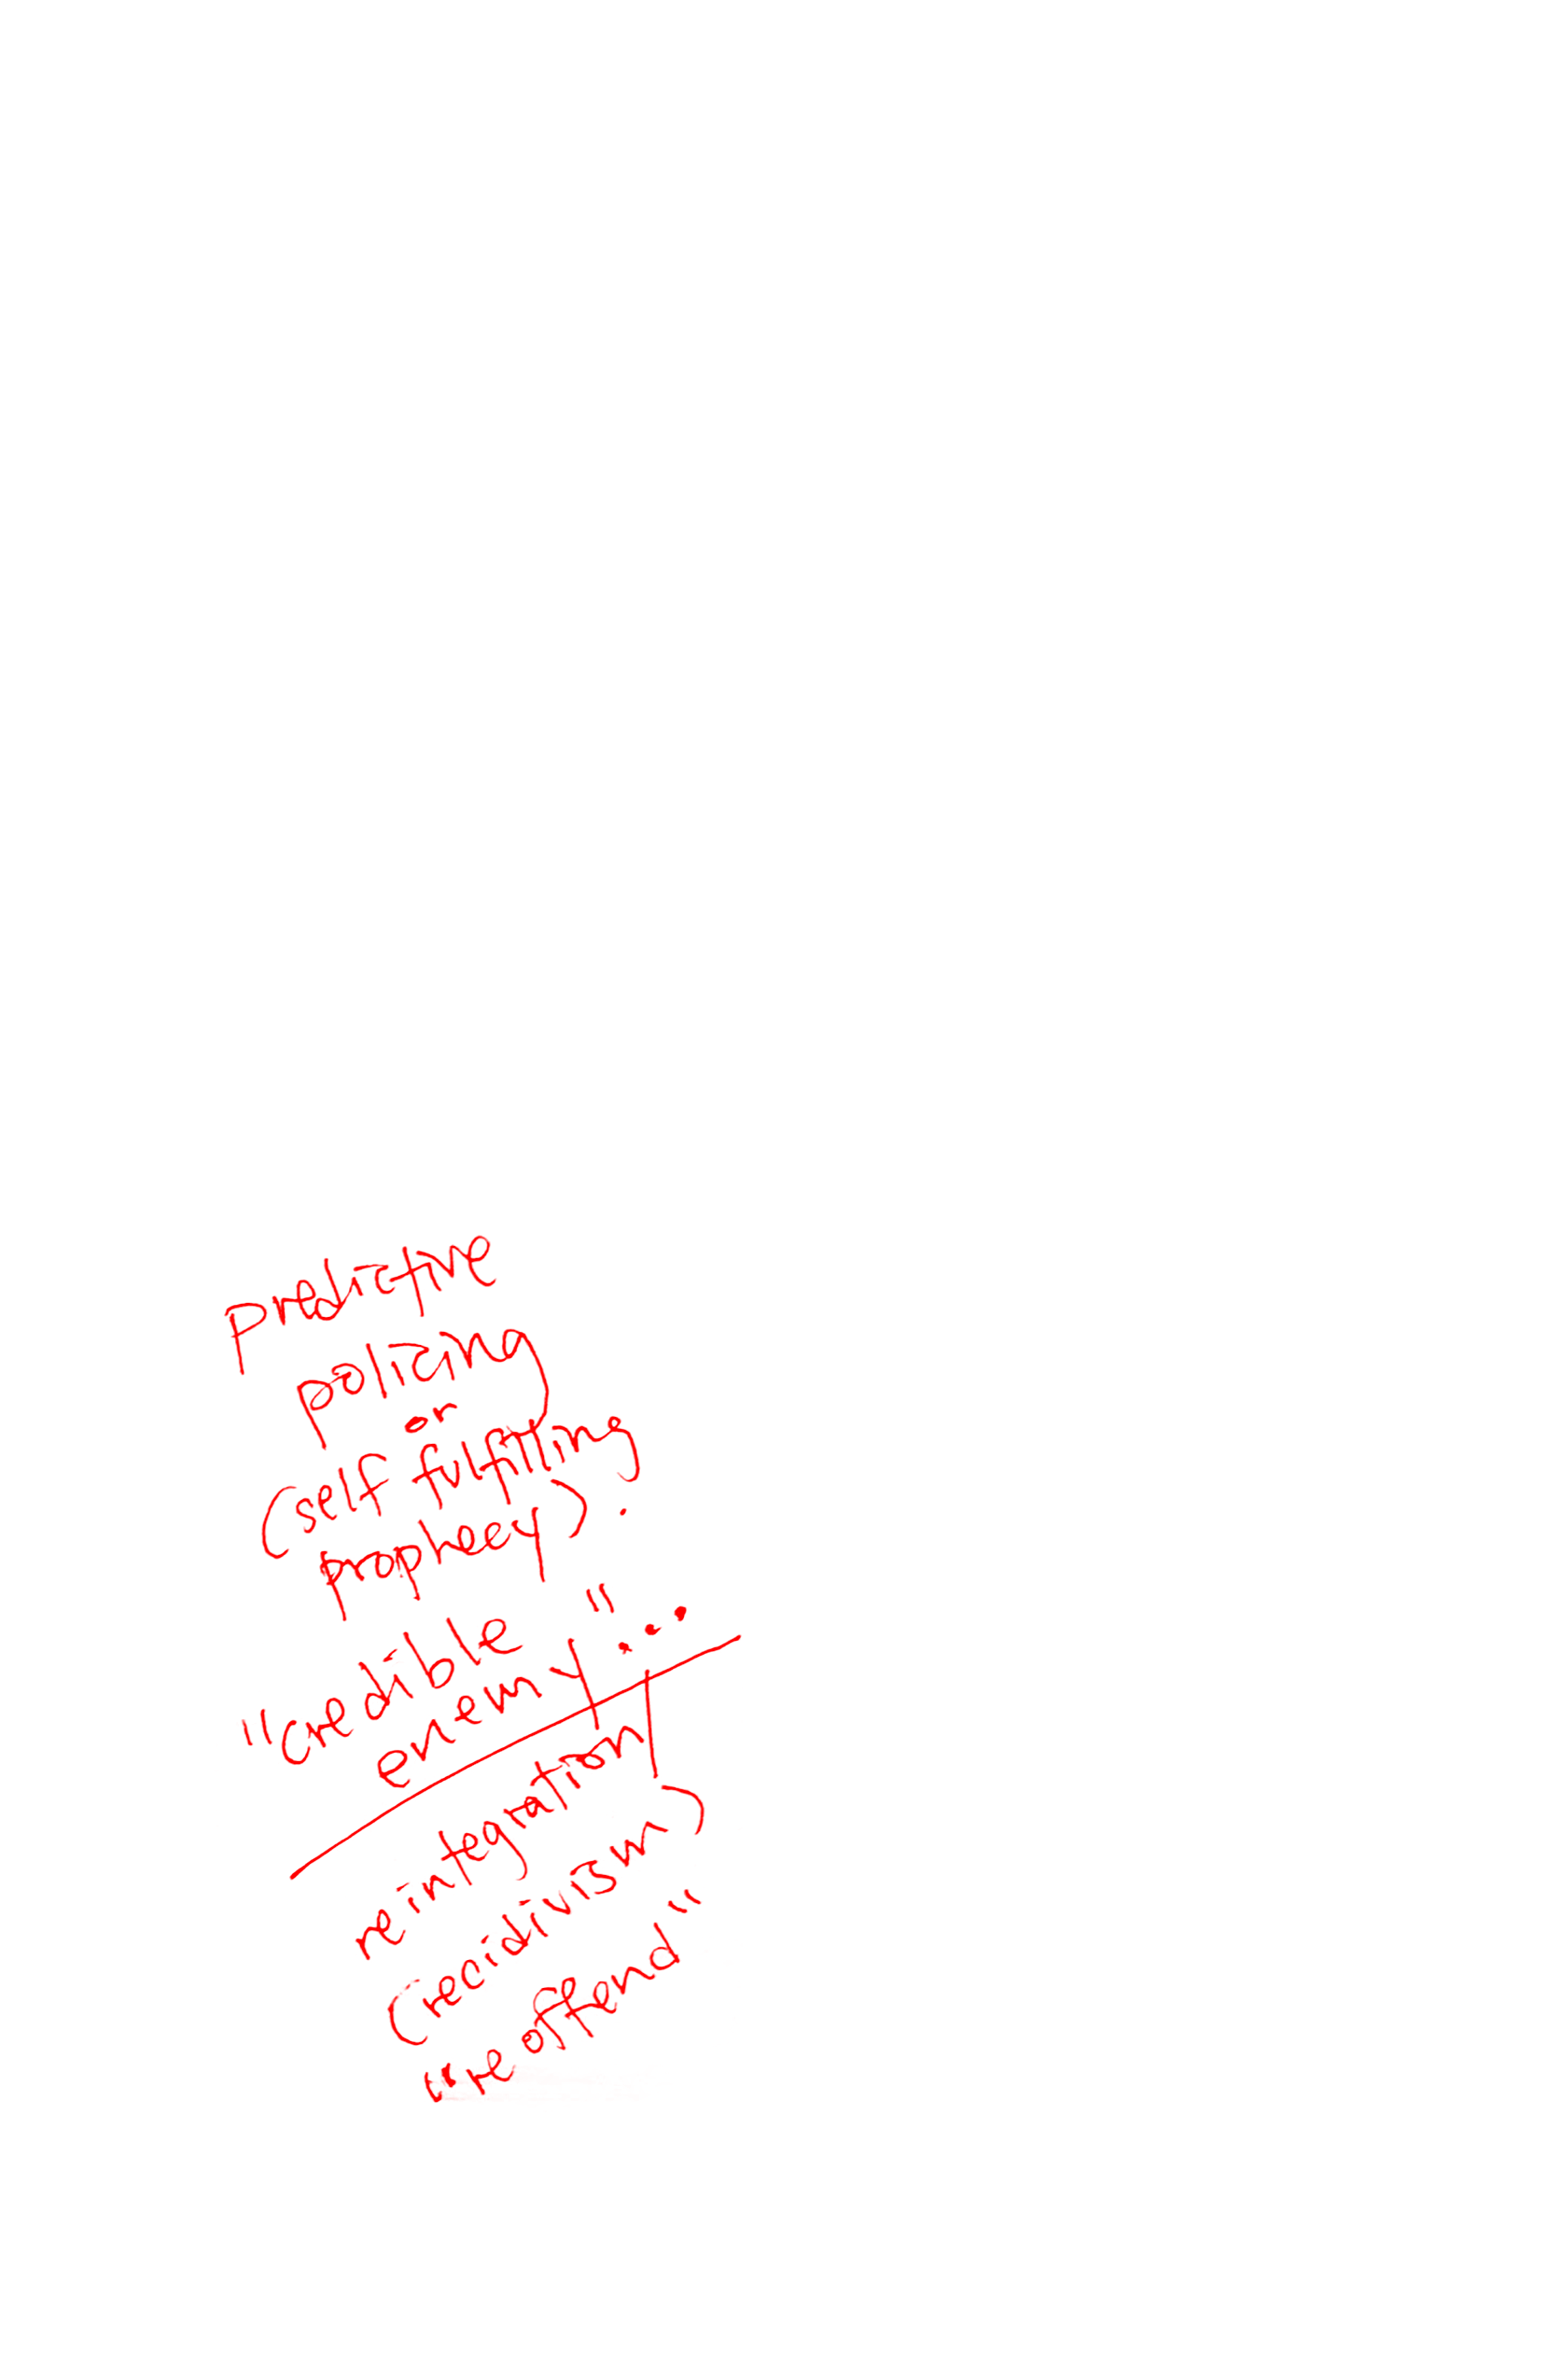 predictive
policing
or
(self fulfilling
prophecy).
"credible
enemy"...
reintegration
(recidivism)
"re offend"